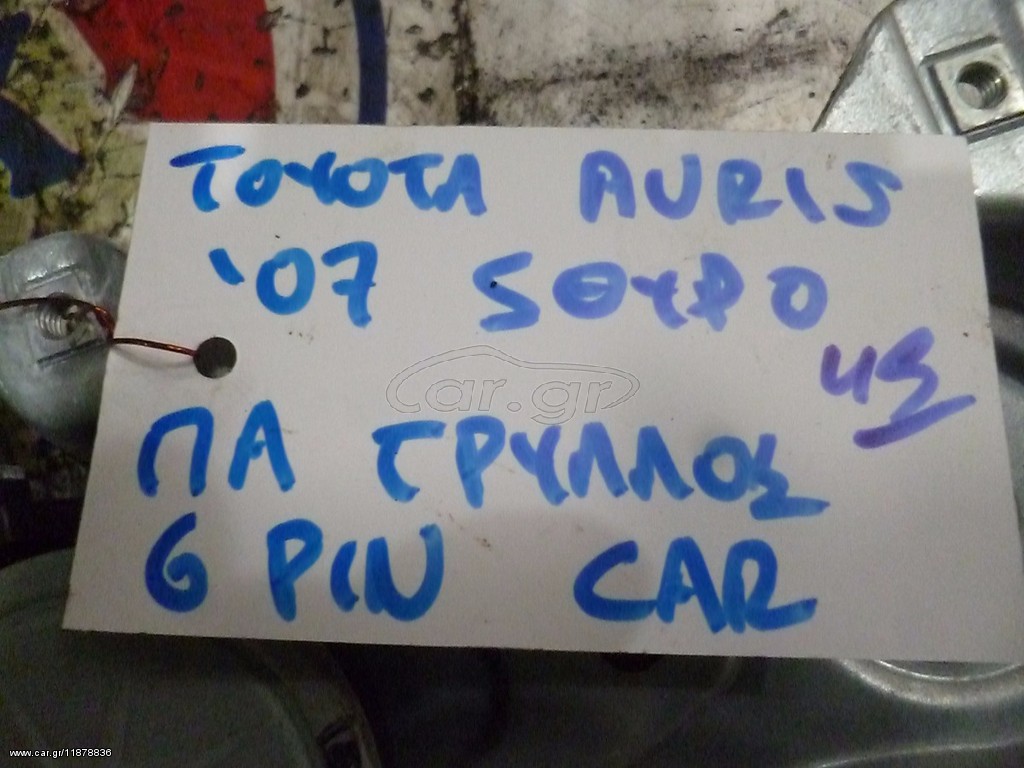 TOYOTA AURIS
'07 5ΘΥΡΟ
ΠΑ ΓΡΥΛΛΟΣ
6 PIN CAR
car.gr
www.car.gr/11878836